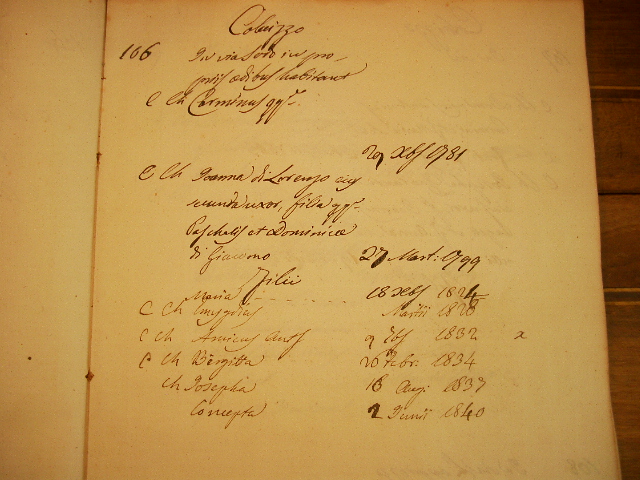 Coluzzo
166 In via Loro in pro-
priis ædibus habitant
C Ch Carminus qq.m
29 Xbris 1781
C Ch Joanna di Lorenzo ejus
secunda uxor, filia qq.m
Paschalis et Dominicæ
di Giacomo 27 Mart: 1799
Filii
Maria 18 Xbris 1824
C Ch Martii 1828
C Ch Amicus Ant.s 9 1832 x
C Ch Bergitta 20 Febr: 1834
Ch Josepha 16 Aug: 1837
Concepta 2 Junii 1840